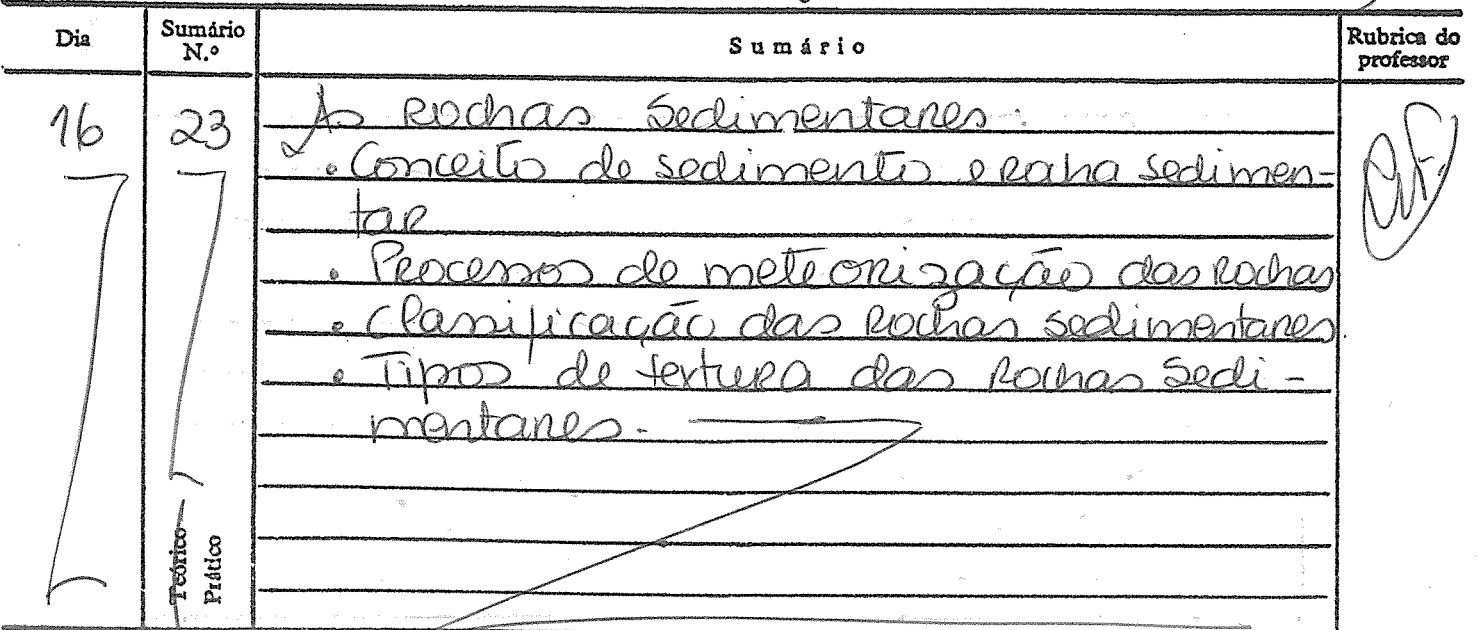 Dia
Sumário N.º
Sumário
Rubrica do professor
16
23
As Rochas Sedimentares:
• Conceito de sedimento e rocha sedimen-
tar
• Processos de meteorização das Rochas
• Classificação das Rochas sedimentares
• Tipos de textura das Rochas Sedi-
mentares.
Teórico
Prático